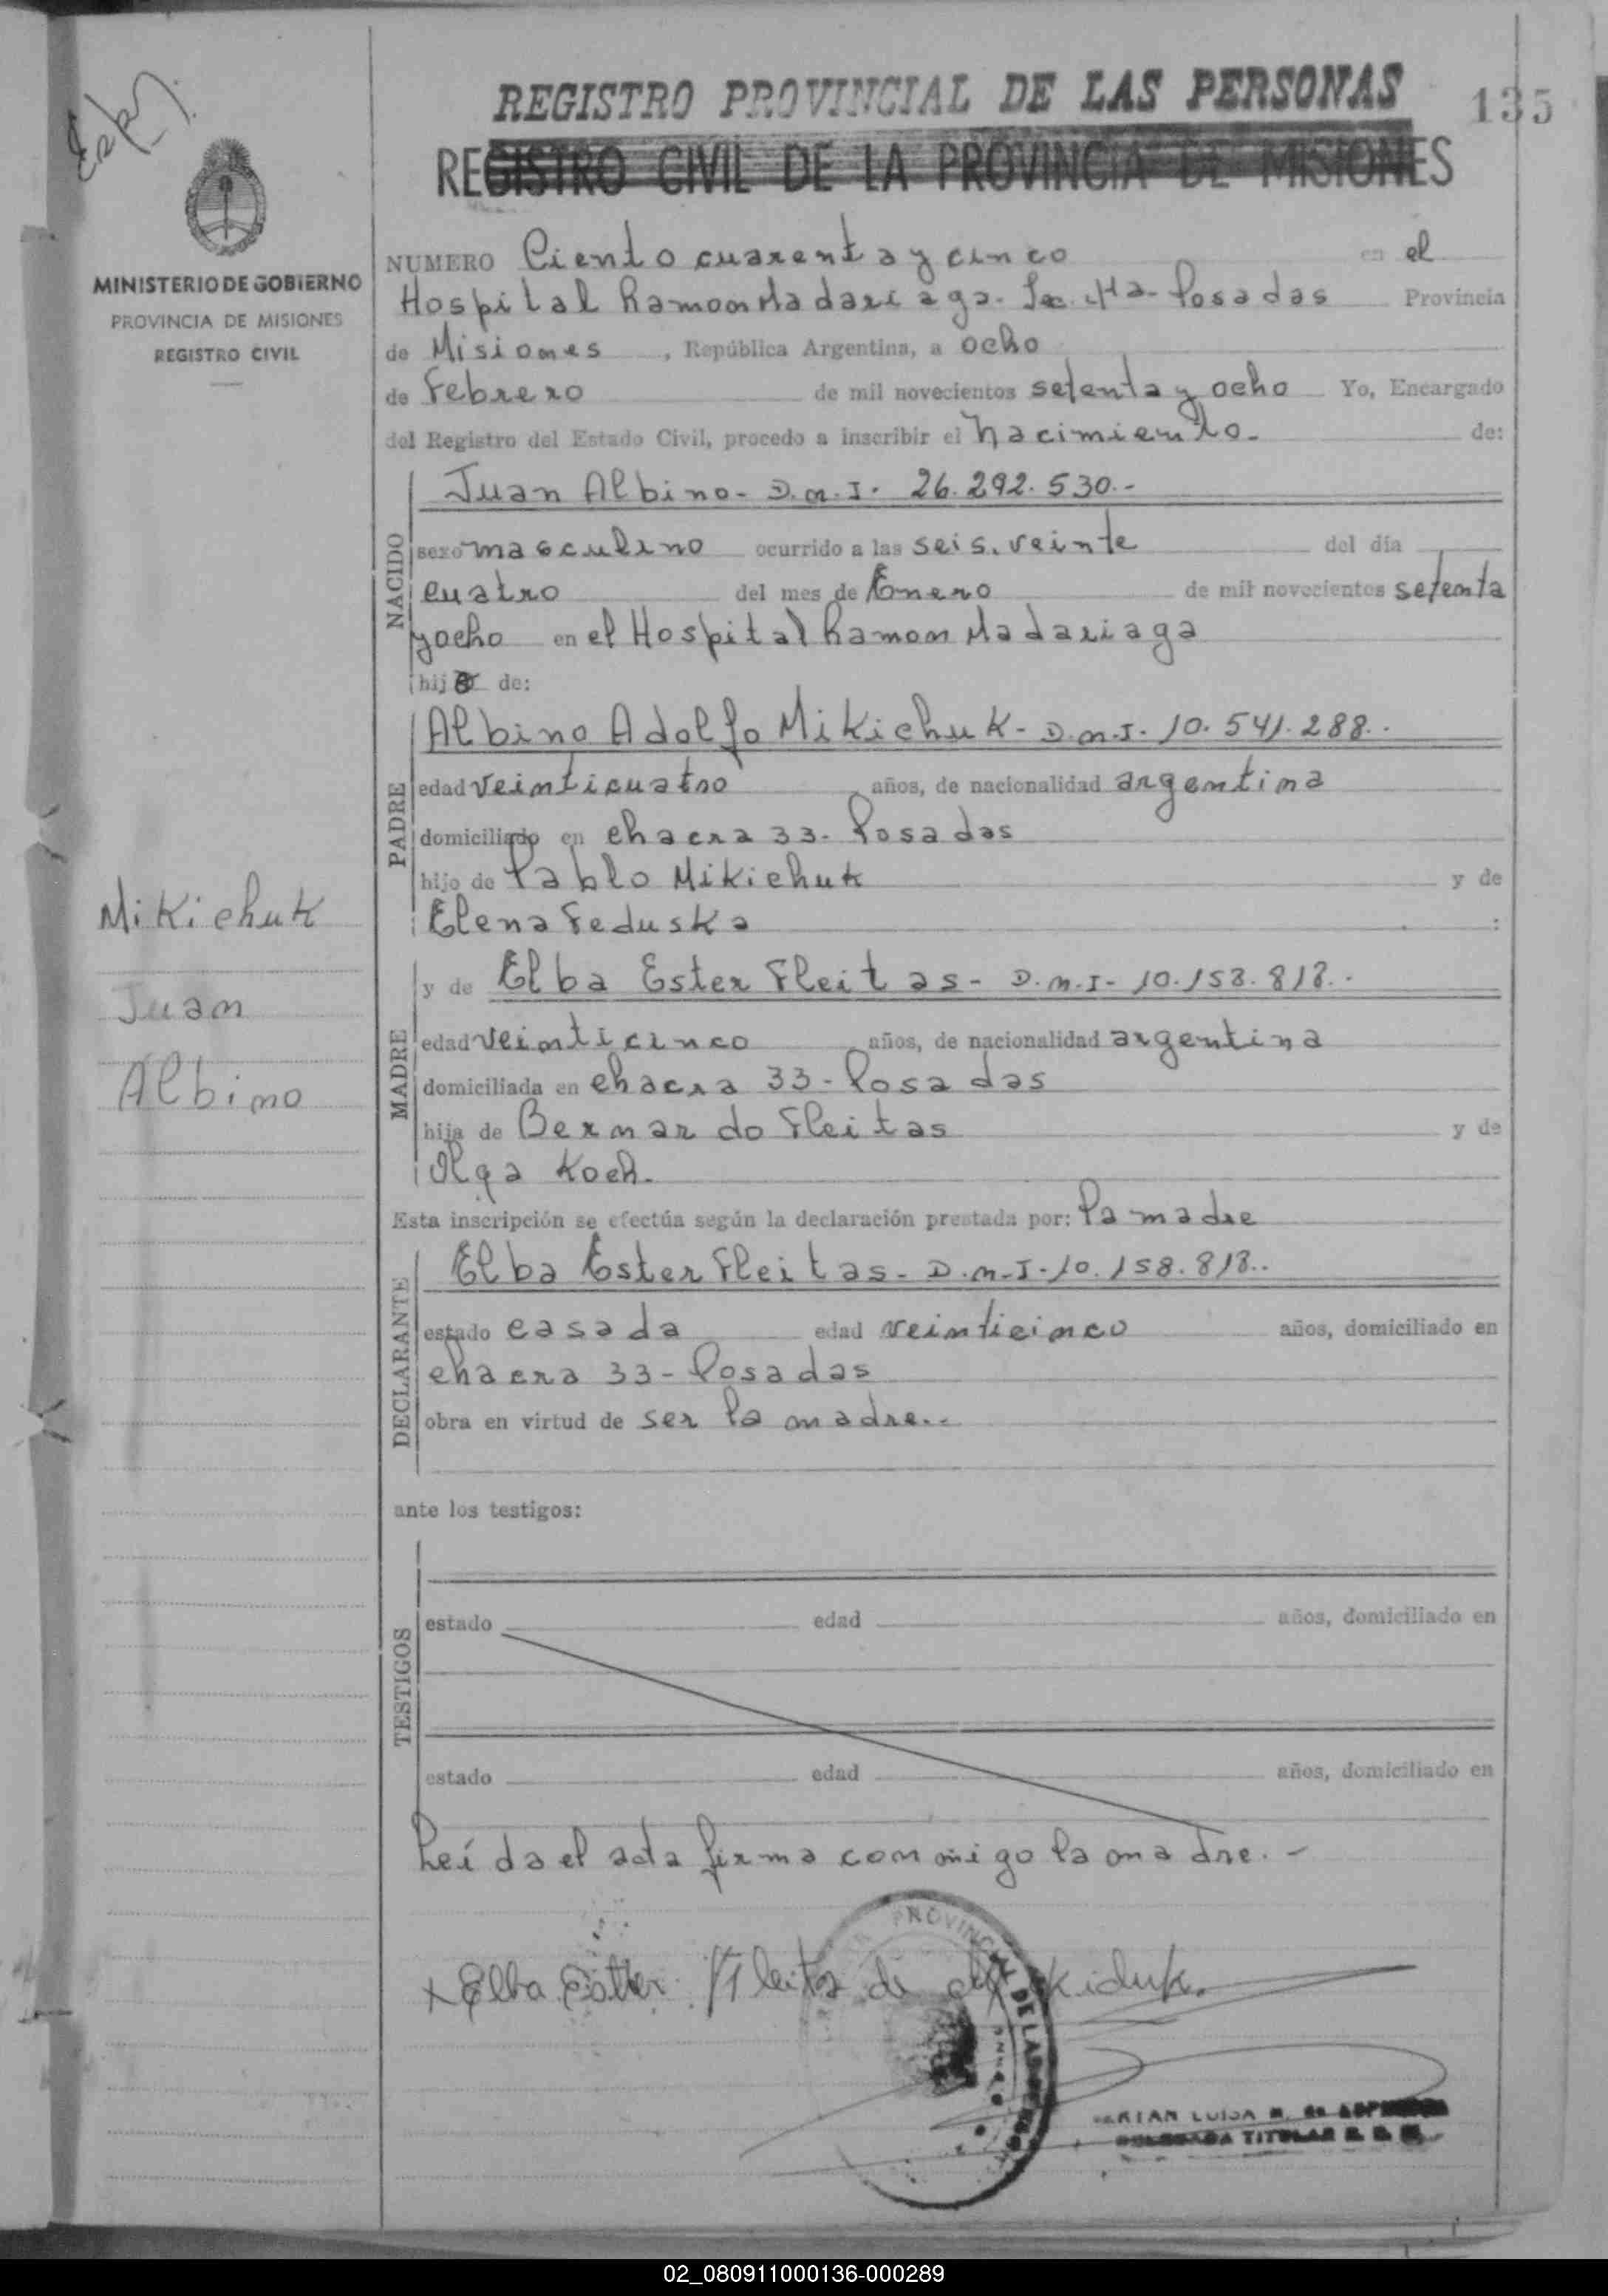 REGISTRO PROVINCIAL DE LAS PERSONAS
135
REGISTRO CIVIL DE LA PROVINCIA DE MISIONES
MINISTERIO DE GOBIERNO
PROVINCIA DE MISIONES
REGISTRO CIVIL
NUMERO Ciento cuarenta y cinco en el
Hospital Ramon Madariaga. Sec. 4ta- Posadas Provincia
de Misiones, República Argentina, a ocho
de Febrero de mil novecientos setenta y ocho Yo, Encargado
del Registro del Estado Civil, procedo a inscribir el nacimiento.- de:
NACIDO
Juan Albino- D.N.I. 26.292.530.-
sexo masculino ocurrido a las seis. veinte del día
cuatro del mes de Enero de mil novecientos setenta
y ocho en el Hospital Ramon Madariaga
hijo de:
PADRE
Albino Adolfo Mikichuk- D.N.I. 10.541.288.-
edad veinticuatro años, de nacionalidad argentina
domiciliado en chacra 33- Posadas
hijo de Pablo Mikichuk y de
Elena Feduska :
Mikichuk
Juan
Albino
MADRE
y de Elba Ester Fleitas- D.N.I- 10.158.818.-
edad veinticinco años, de nacionalidad argentina
domiciliada en chacra 33- Posadas
hija de Bernardo Fleitas y de
Olga Koch.
Esta inscripción se efectúa según la declaración prestada por: la madre
DECLARANTE
Elba Ester Fleitas- D.N.I-10.158.818.-
estado casada edad veinticinco años, domiciliado en
chacra 33- Posadas
obra en virtud de ser la madre.-
ante los testigos:
TESTIGOS
estado edad años, domiciliado en
estado edad años, domiciliado en
Leída el acta firma conmigo la madre.-
x Elba Esther Fleitas de
TITULAR
02_080911000136-000289